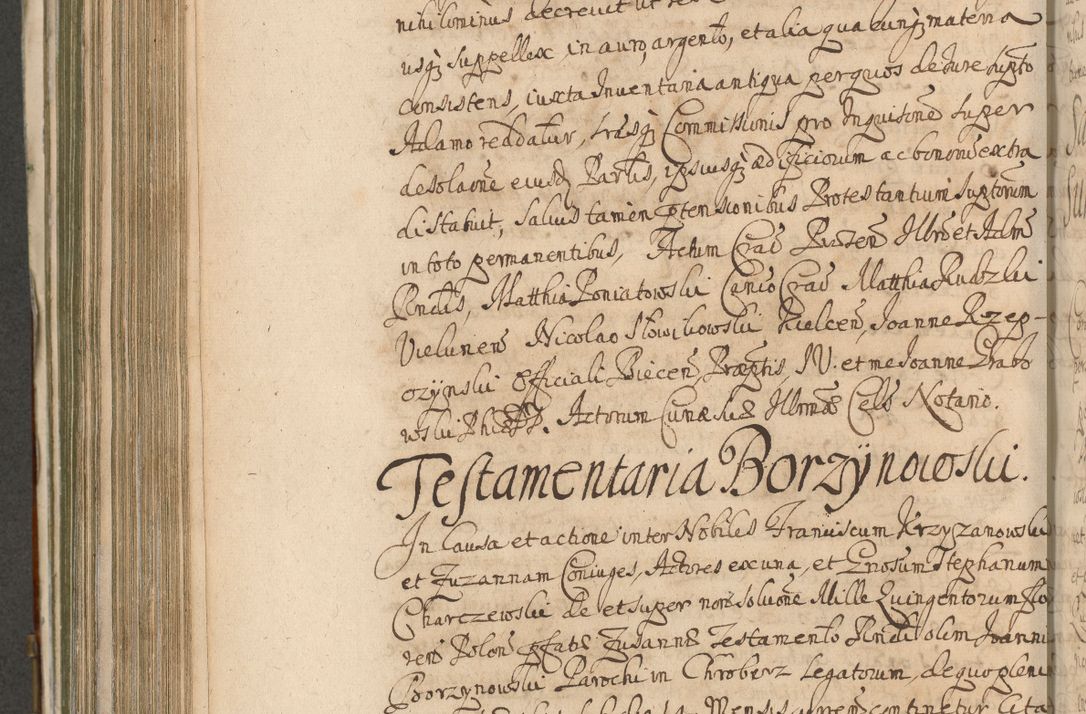 nihilominus decrevit ut
usq; suppellex, in auro, argento, et alia quacunq; materia
consistens, iuxta Inventaria antiqua per quos de Iure supto
Adamo reddatur, Commissionis pro Inquisitione super
desolaone eiusd Partis, ipsiusq; ædificiorum ac bonorum extra
distabuit, salvis tamen ptensionibus Protestantium suptorum
in toto permanentibus, Actum Crac Pñten Illrē et Adm
Rndis, Matthia Poniatowski Canco Crac Matthia Rudzki
Vielunen Nicolao Słowikowski Kielcen, Joanne Rzep-
czynski Officiali Biecen, Præptis, IV. et me Joanne Grabo
wski Actorum Curiæ suæ Illrmæ Cels Notario.
Testamentaria Borzynowski.
In Causa et actione inter Nobiles Franciscum Krzyżanowski
et Zuzannam Coniuges, Actores ex una, et Gnosum Stephanum
Charczewski de et super non solvone Mille Quingentorum Flo
ren Polon pfatæ Zusannæ Testamento Rndi olim Joannis
Borzynowski Parochi in Chroberz Legatorum, de quo pleni
Mensis continetur Cita